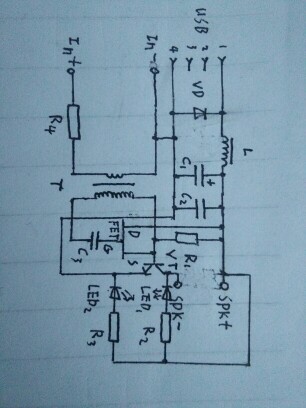 In+
In-
USB
4
3
2
1
VD
R4
L
C1
+
C2
T
D
FET
G
S
C3
R1
VT
SPK-
SPK+
LED2
LED1
R3
R2